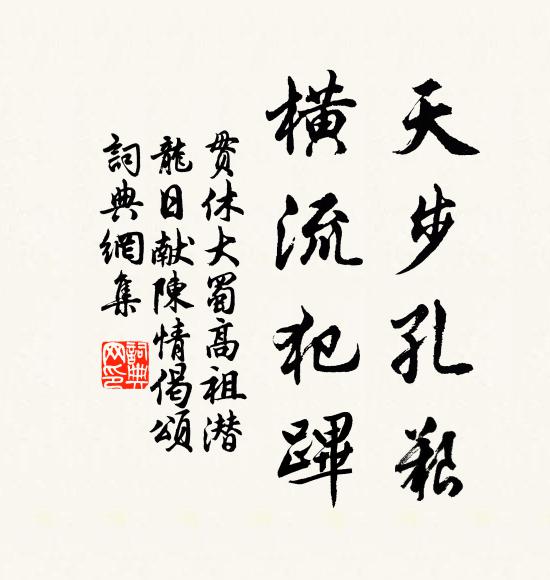 天步孔艱
橫流犯蹕
贯休大蜀高祖潜
龍日献陳情偈頌
詞典網集
詞典
网印